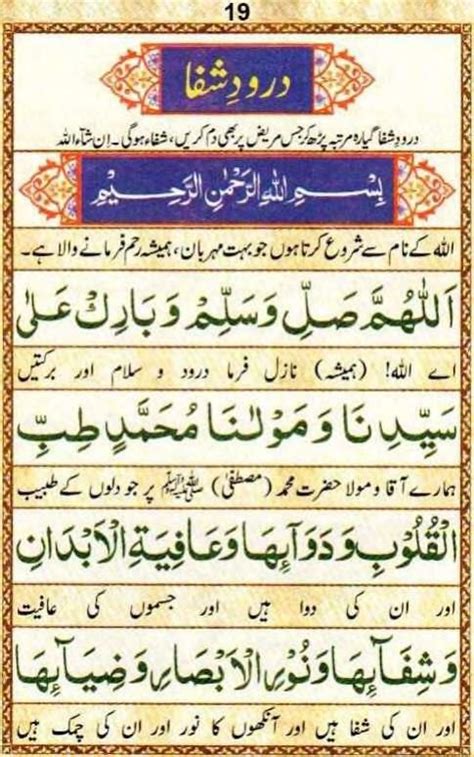 19
درودِ شفا
درودِ شفا گیارہ مرتبہ پڑھ کر جس مریض پر بھی دم کریں، شفاء ہوگی۔ اِن شاءاللہ
بِسْمِ اللهِ الرَّحْمٰنِ الرَّحِيْمِ
اللہ کے نام سے شروع کرتا ہوں جو بہت مہربان، ہمیشہ رحم فرمانے والا ہے۔
اَللّٰهُمَّ صَلِّ وَسَلِّمْ وَبَارِكْ عَلٰى
اے اللہ! (ہمیشہ) نازل فرما درود و سلام اور برکتیں
سَيِّدِنَا وَمَوْلٰنَا مُحَمَّدٍ طِبِّ
ہمارے آقا و مولا حضرت محمد (مصطفٰی) ﷺ پر جو دلوں کے طبیب
الْقُلُوْبِ وَدَوَآئِهَا وَعَافِيَةِ الْاَبْدَانِ
اور ان کی دوا ہیں اور جسموں کی عافیت
وَشِفَآئِهَا وَنُوْرِ الْاَبْصَارِ وَضِيَآئِهَا
اور ان کی شفا ہیں اور آنکھوں کا نور اور ان کی چمک ہیں